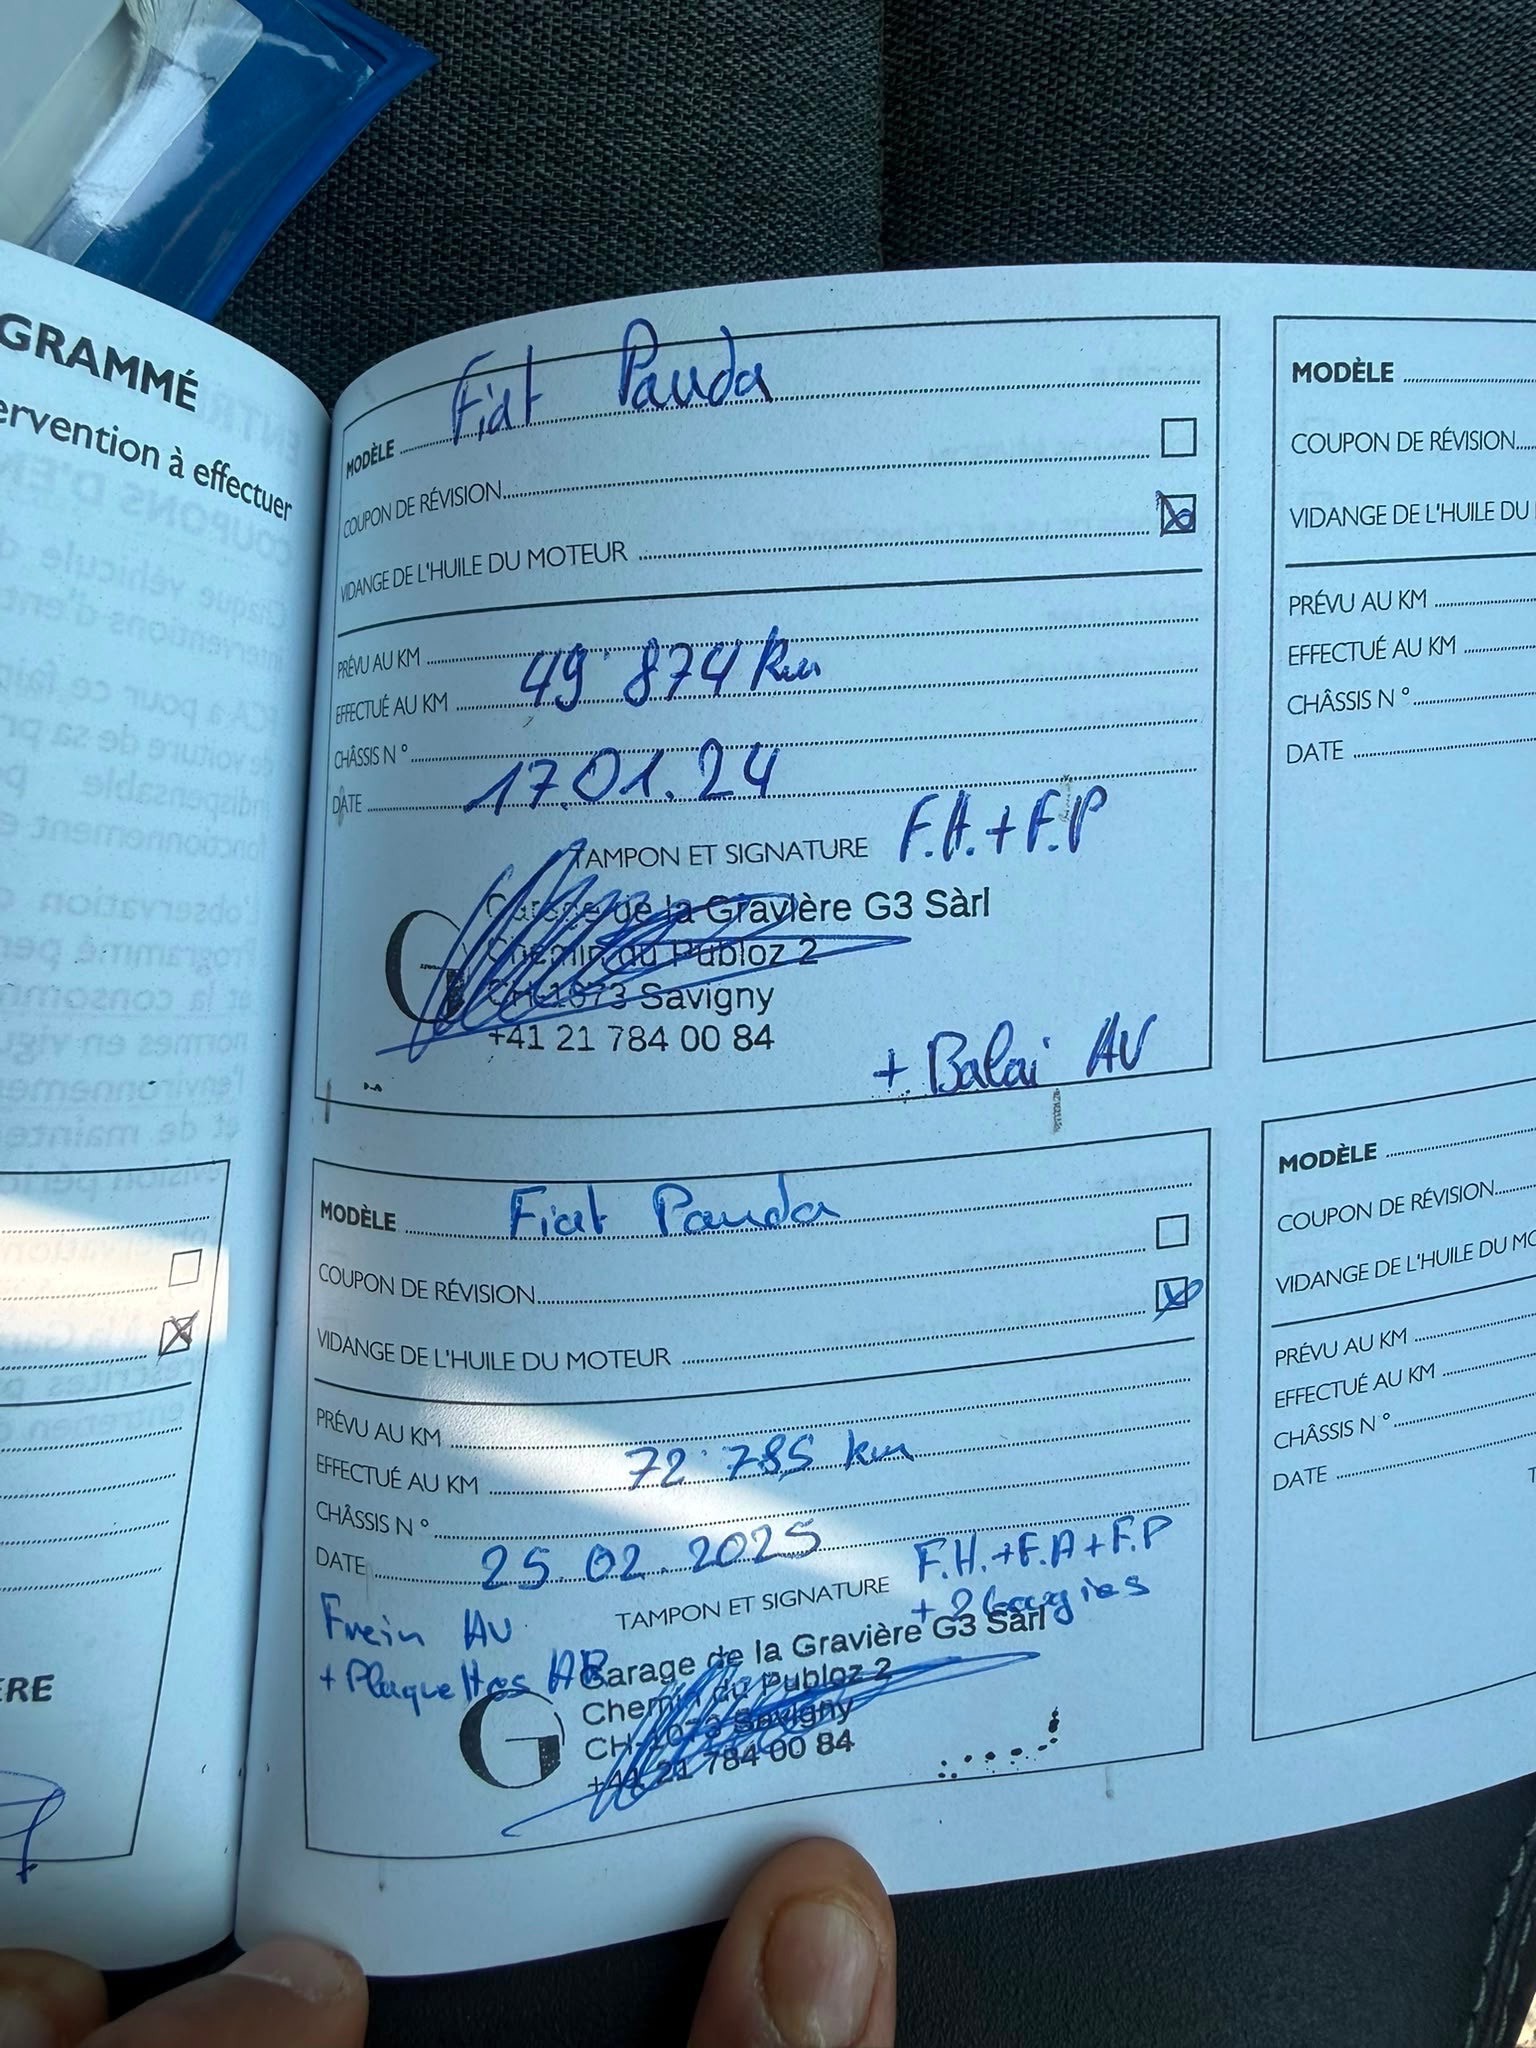 GRAMMÉ
ervention à effectuer
ERE
Fiat Panda
MODÈLE
COUPON DE RÉVISION
VIDANGE DE L'HUILE DU MOTEUR
PRÉVU AU KM
EFFECTUÉ AU KM 49'874 km
CHÂSSIS N °
DATE 17.01.24
TAMPON ET SIGNATURE F.H.+F.P
Garage de la Gravière G3 Sàrl
Chemin du Publoz 2
CH-1073 Savigny
+41 21 784 00 84
+ Balai AV
MODÈLE Fiat Panda
COUPON DE RÉVISION
VIDANGE DE L'HUILE DU MOTEUR
PRÉVU AU KM
EFFECTUÉ AU KM 72'785 km
CHÂSSIS N °
DATE 25.02.2025
F.H.+F.A+F.P
TAMPON ET SIGNATURE + Bougies
Frein AV
+ Plaquettes AR
Garage de la Gravière G3 Sàrl
Chemin du Publoz 2
CH-1073 Savigny
+41 21 784 00 84
MODÈLE
COUPON DE RÉVISION
VIDANGE DE L'HUILE DU
PRÉVU AU KM
EFFECTUÉ AU KM
CHÂSSIS N °
DATE
MODÈLE
COUPON DE RÉVISION
VIDANGE DE L'HUILE DU MO
PRÉVU AU KM
EFFECTUÉ AU KM
CHÂSSIS N °
DATE
T